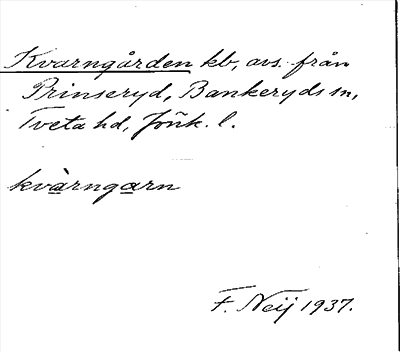 Kvarngården kb, avs. från
Prinseryd, Bankeryds sn,
Tveta hd, Jönk. l.
kvàrngarn
F. Neij 1937.